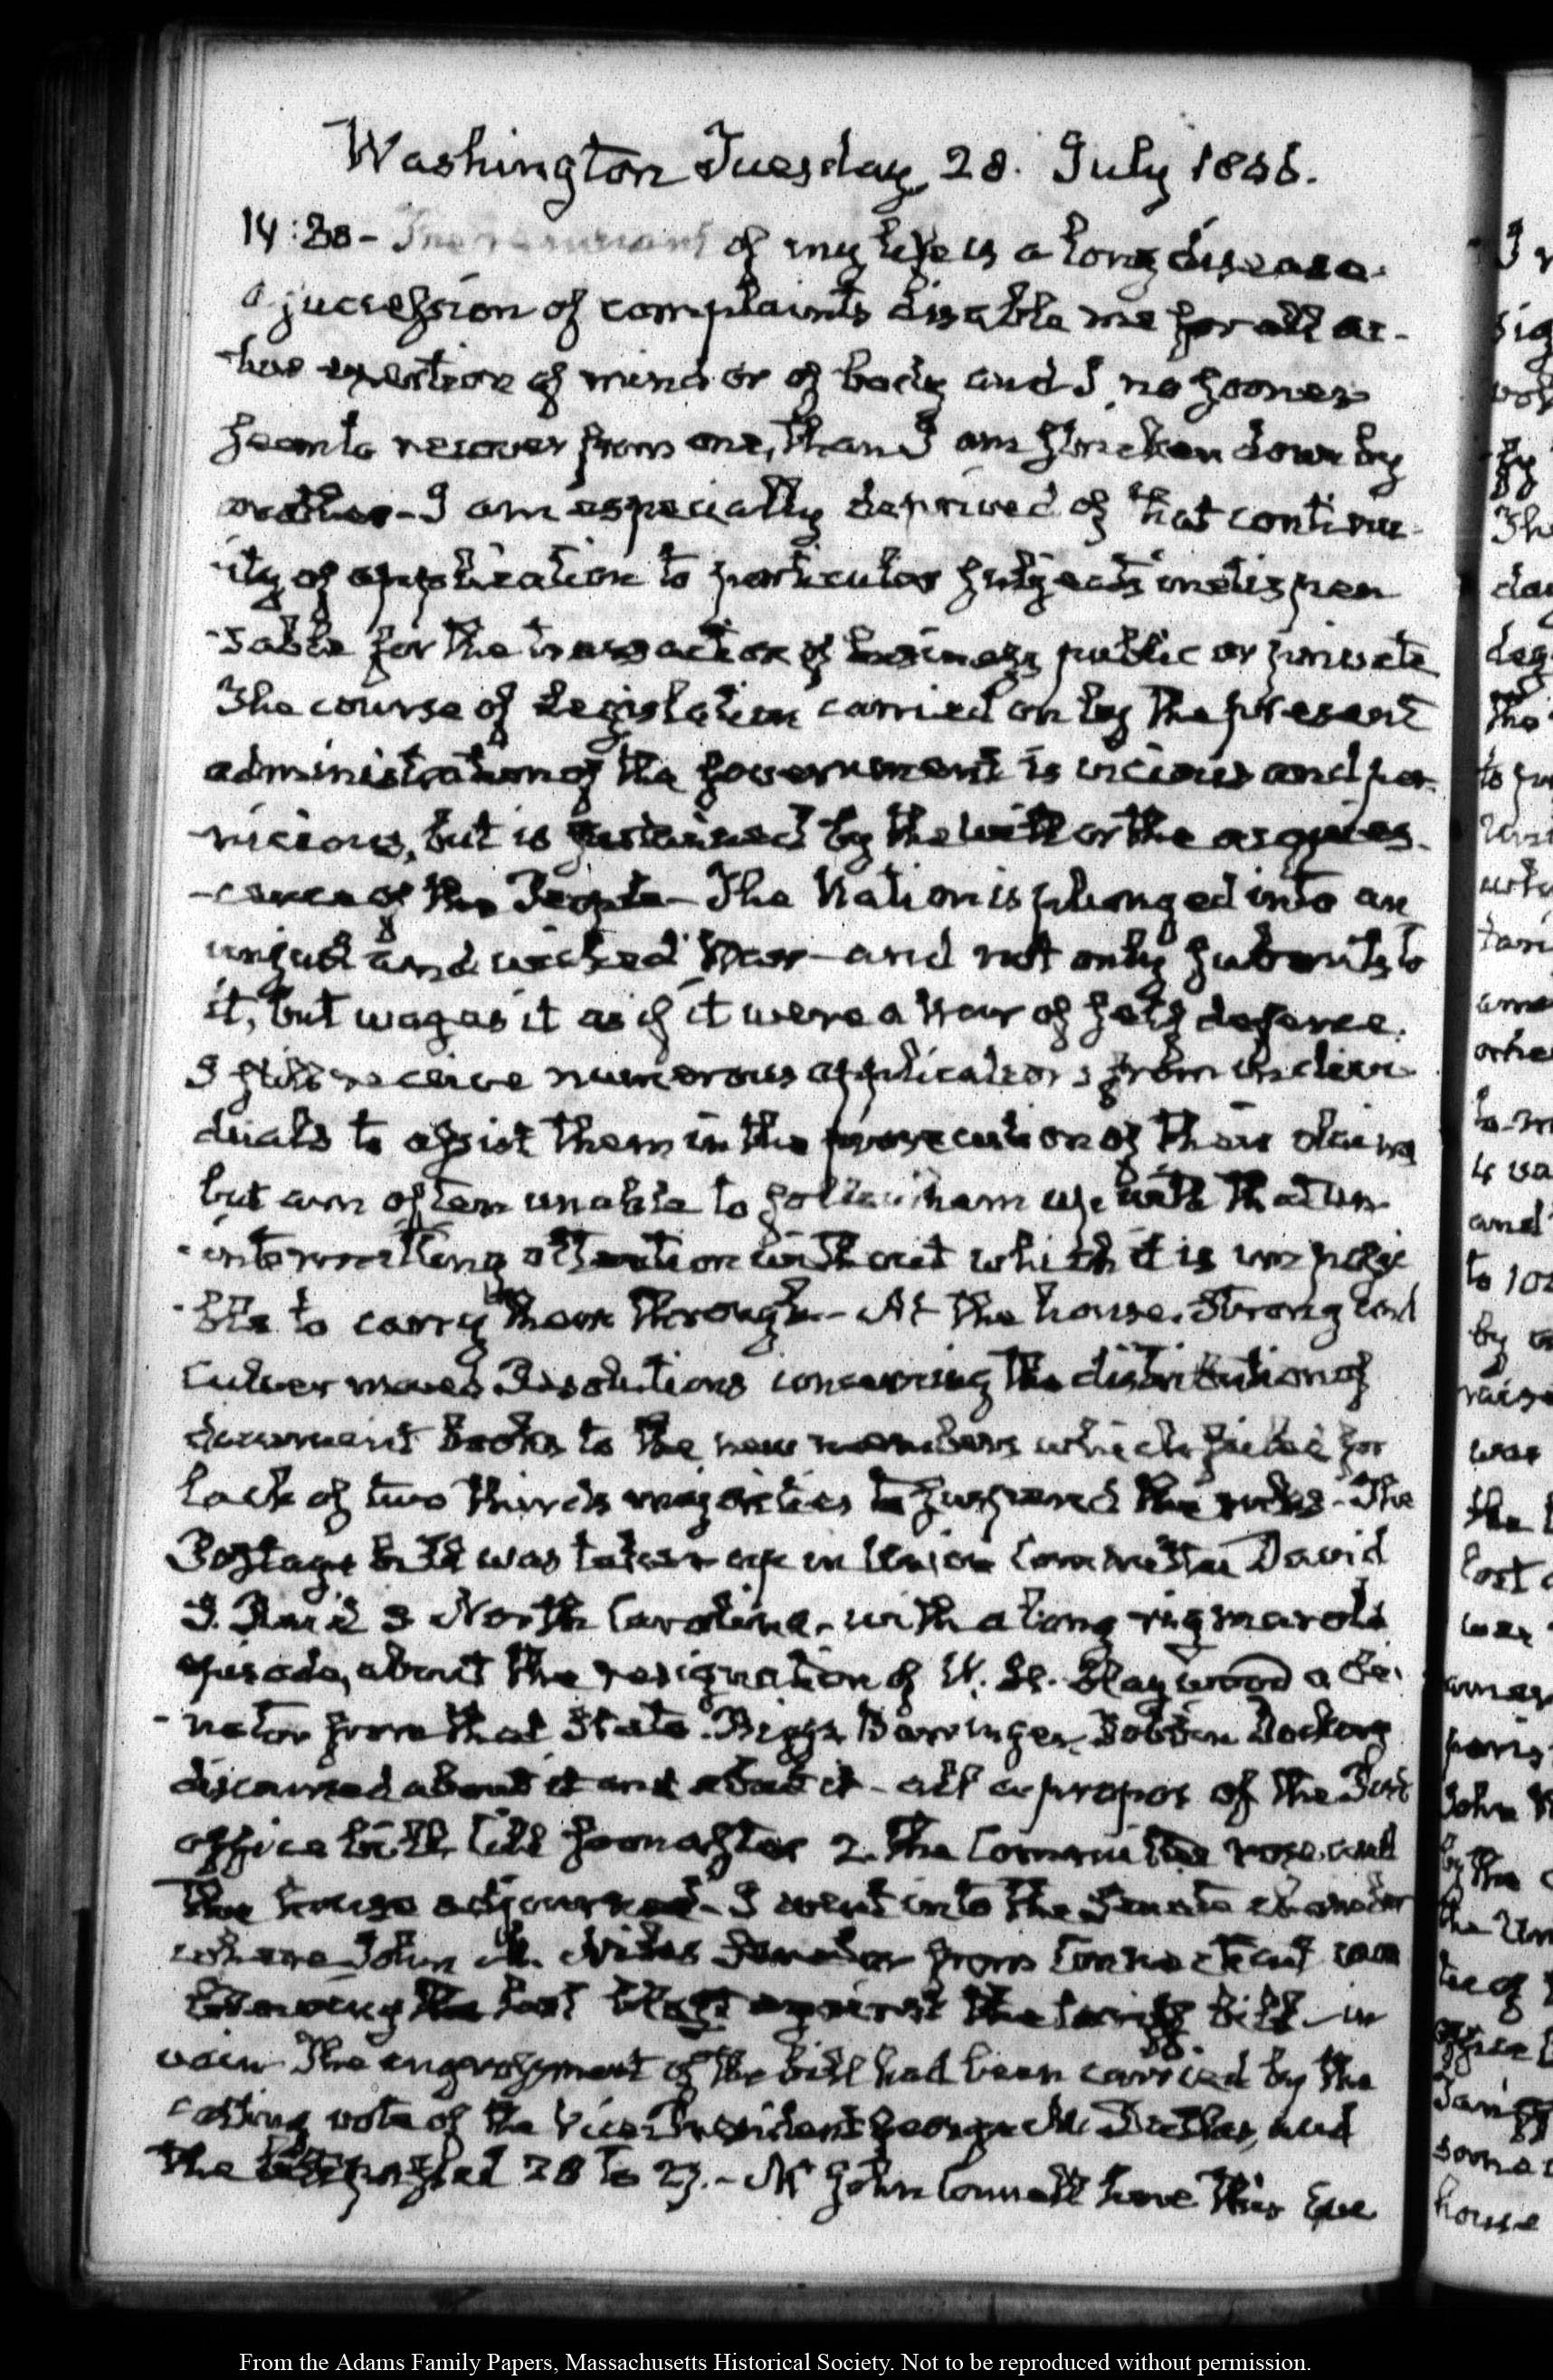 Washington Tuesday 28. July 1846.
14:30- The remnant of my life is a long disease.
a succession of complaints disable me for all ac-
-tive exertion of mind or of body and I no sooner
seem to recover from one, than I am stricken down by
another- I am especially deprived of that continu-
-ity of application to particular subjects indispen
-sable for the transaction of business public or private
The course of legislation carried on by the present
administration of the government is vicious and per-
-nicious, but is sustained by the will or the acquies-
-cence of the People- The Nation is plunged into an
unjust and wicked War-and not only submits to
it, but wages it as if it were a War of self defence.
I still receive numerous applications from indivi-
duals to assist them in the prosecution of their claims
but am often unable to follow them up with that un-
-intermitting attention without which it is impossi
-ble to carry them through- At the house. Strong and
Culver moved Resolutions concerning the distribution of
document books to the new members which failed for
lack of two thirds majorities to suspend the rules- The
Postage bill was taken up in Union Committee David
S. Reid 3 North Carolina, with a long rigmarole
episode, about the resignation of W. H. Haywood a Se-
-nator from that State. Biggs Barringer, Dobbin Dockery
discoursed about it and about it- all apropos of the Post
office bill, till soon after 2. the Committee rose and
the house adjourned- I went into the Senate chamber
where John M. Niles Senator from Connecticut was
blowing the last blast against the tariff bill- in
vain The engrossment of the bill had been carried by the
casting vote of the Vice President George M. Dallas, and
the bill passed 28 to 27.- Mr John Connell here this Eve